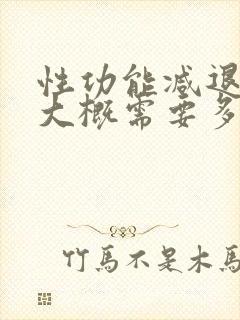 性功能减退
大概需要多
竹馬不是木馬